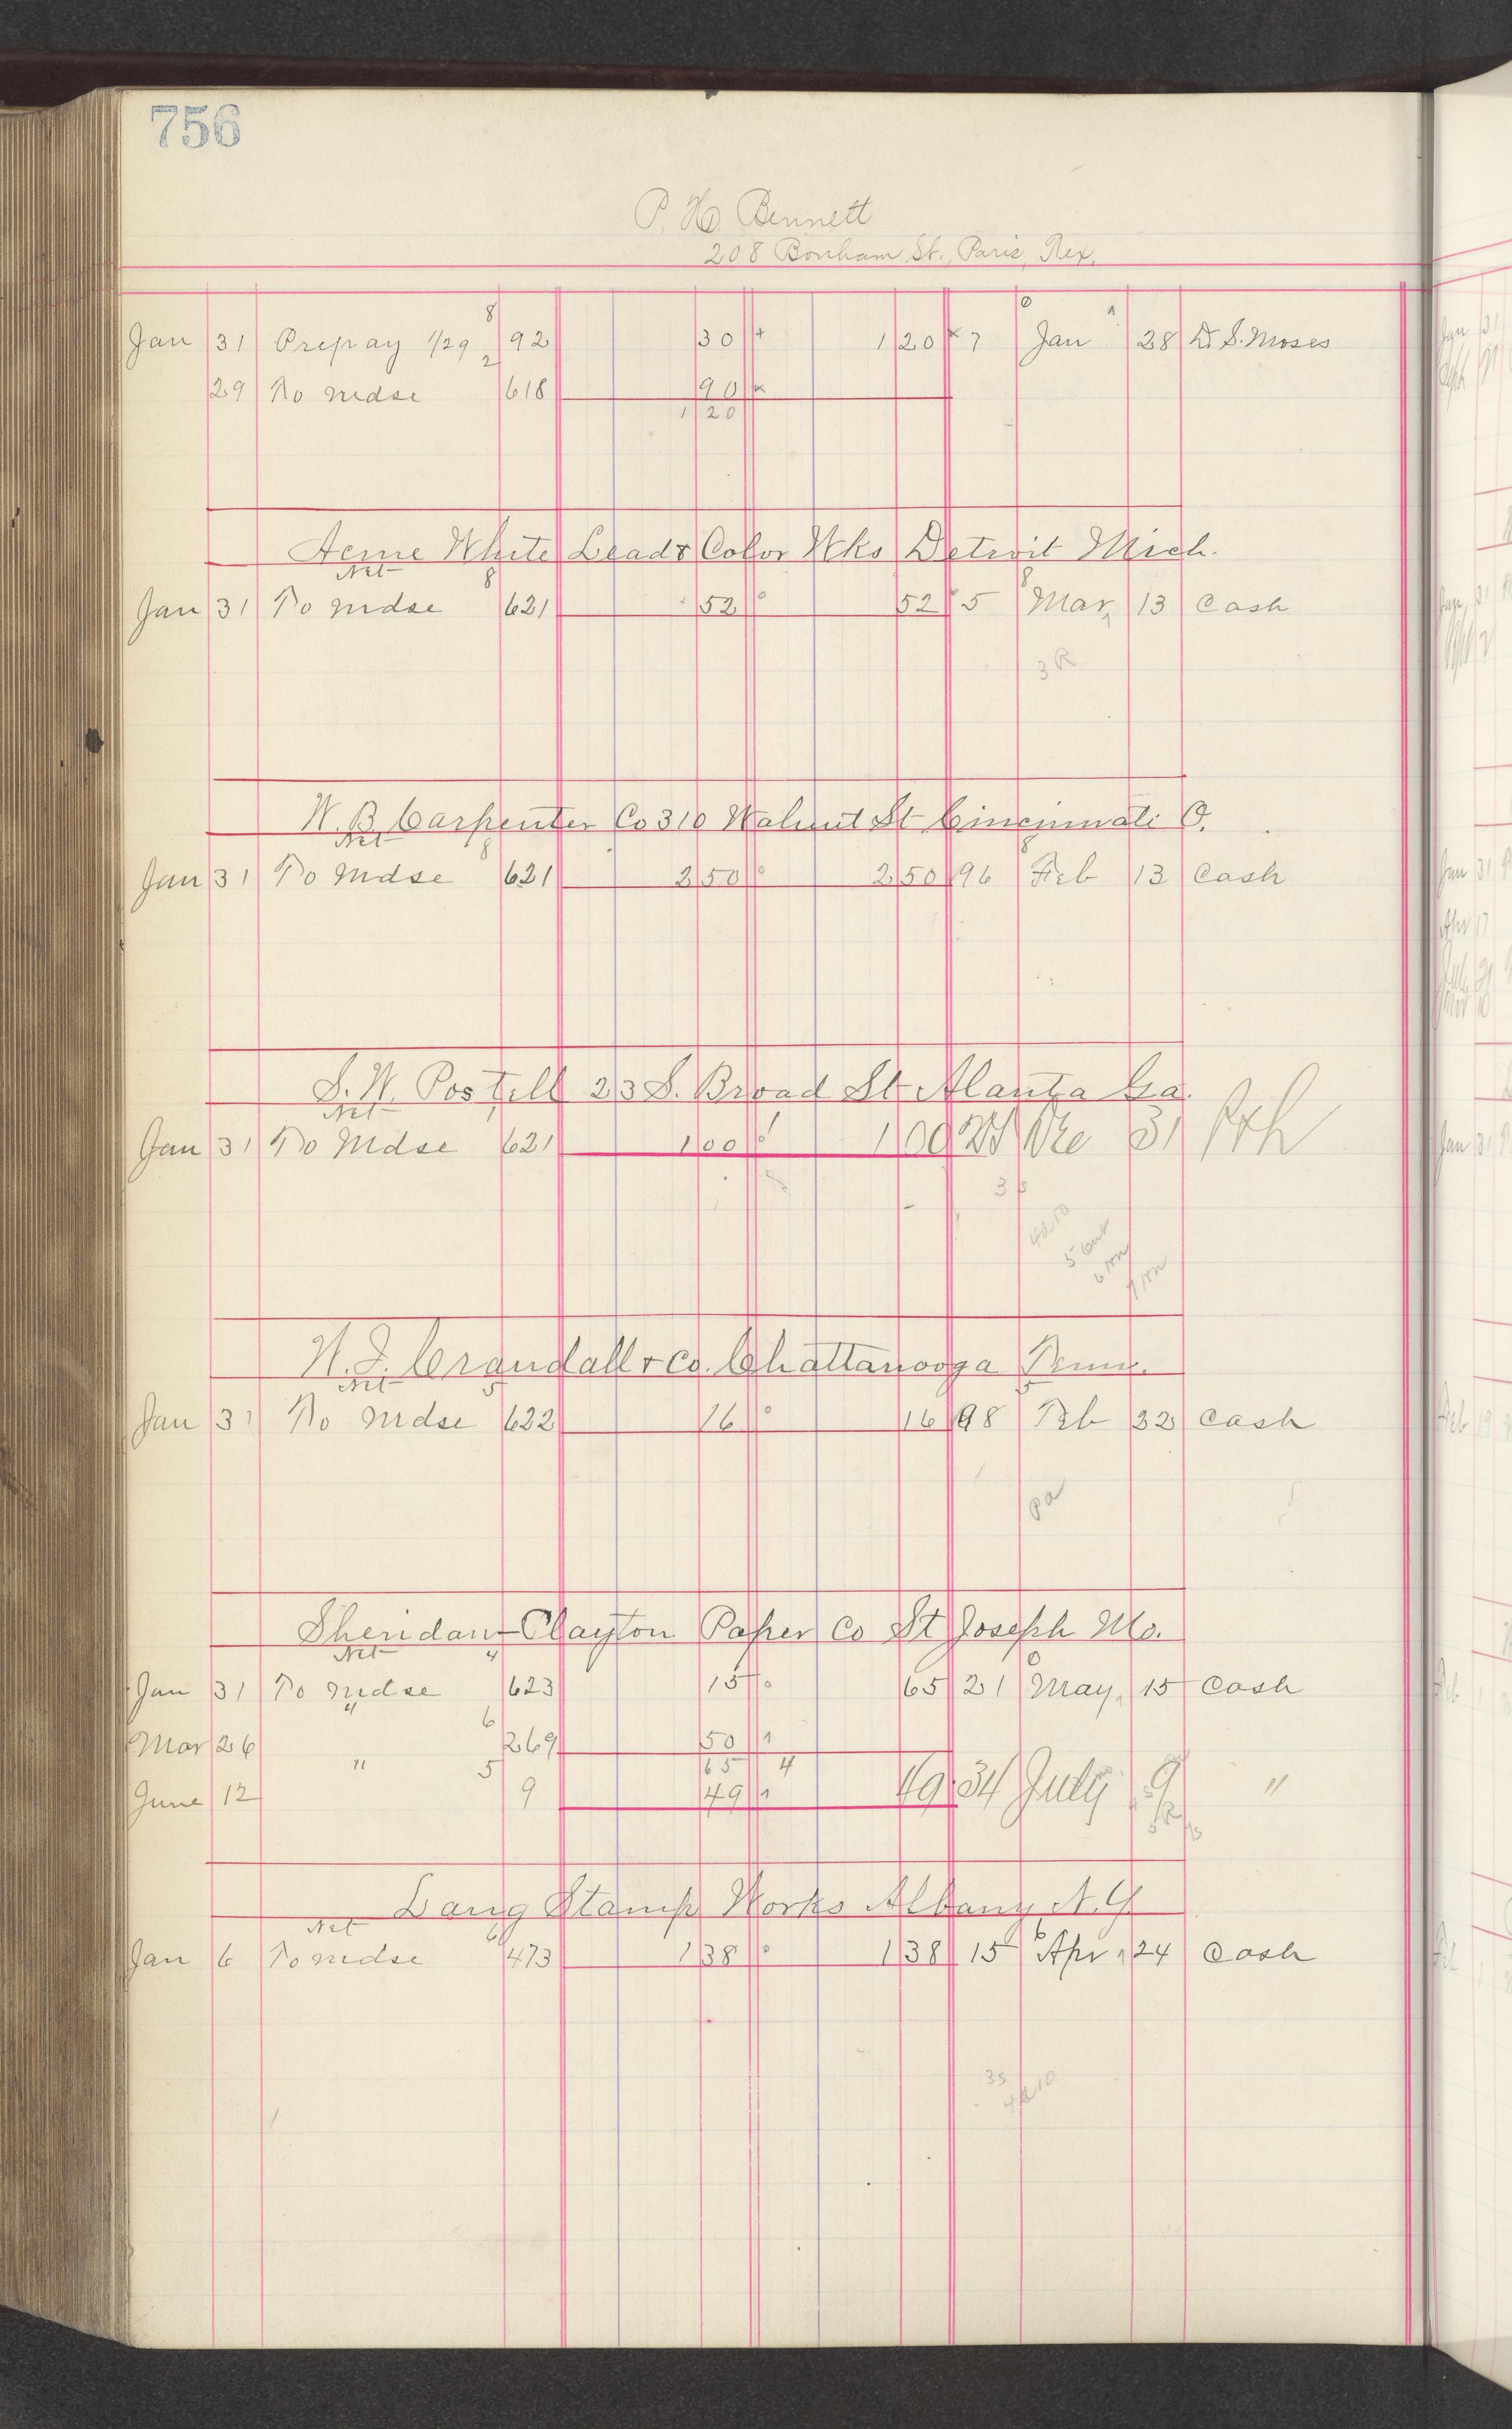 756
P. H. Bennett
208 Bonham St., Paris, Tex.
Jan 31 Prepay 1/29 92 30 1 20 7 Jan 28 D. S. Moses
29 To mdse 618 90
1 20
Acme White Lead & Color Wks Detroit Mich.
Net 8
Jan 31 To mdse 621 52 52 5 Mar 13 Cash
3 R
W. B. Carpenter Co 310 Walnut St Cincinnati O.
Net 8
Jan 31 To mdse 621 2 50 2 50 96 Feb 13 Cash
S. W. Postell 23 S. Broad St Alanta Ga.
Net
Jan 31 To mdse 621 1 00 1 00 31
W. J. Crandall & Co. Chattanooga Tenn.
Net 5
Jan 31 To mdse 622 16 16 98 Feb 22 Cash
Sheridan-Clayton Paper Co St Joseph Mo.
Net 4
Jan 31 To mdse 623 15 65 21 May 15 Cash
Mar 26 " 6 269 50
65 4
June 12 " 5 9 49 49 34 July 9 "
Lang Stamp Works Albany N.Y
Net 6
Jan 6 To mdse 473 1 38 1 38 15 Apr 24 Cash
35